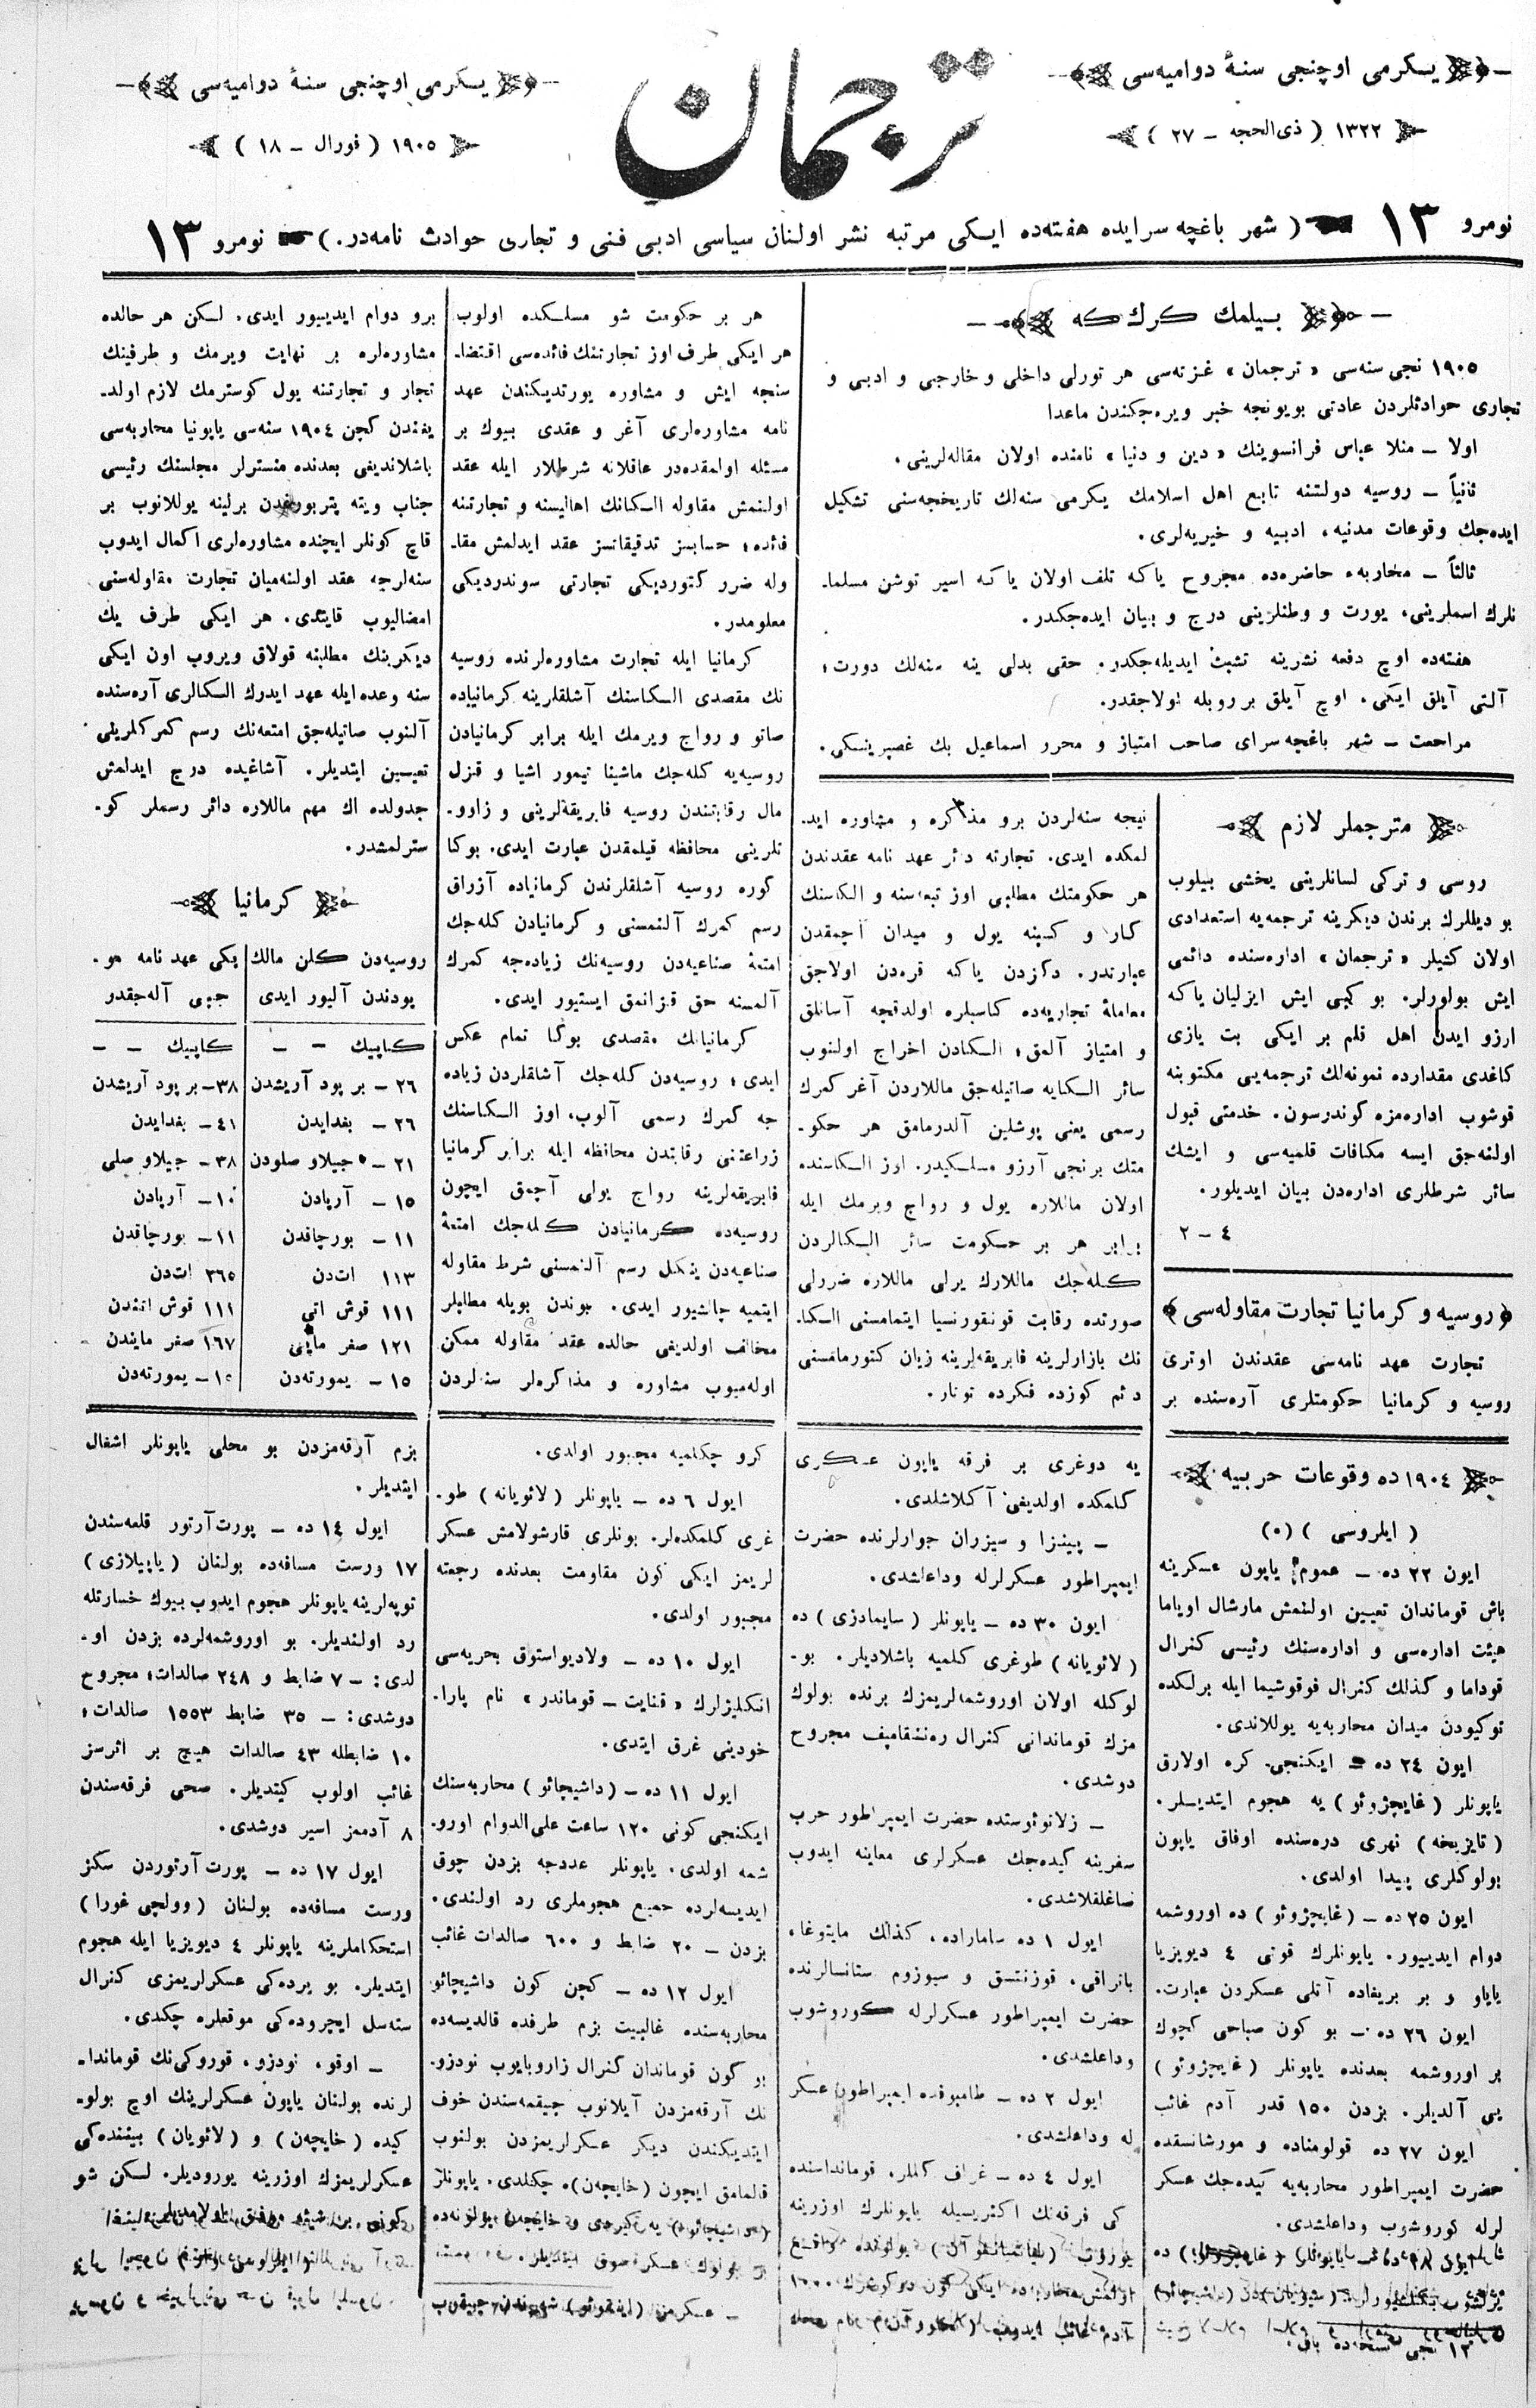 يكرمی اوچنجی سنۀ دواميه‌سی
١٣٢٢ ( ذی‌الحجه – ٢٧ )
ترجمان
يكرمی اوچنجی سنۀ دواميه‌سی
١٩٠٥ ( فورال – ١٨ )
نومرو ١٣ ( شهر باغچه سرايده هفته‌ده ايكی مرتبه نشر اولنان سياسی ادبی فنی و تجاری حوادث نامه‌در. ) نومرو ١٣
بيلمك كرك كه
١٩٠٥ نجی سنه‌سی « ترجمان » غزته‌سی هر تورلی داخلی و خارجی و ادبی و
تجاری حوادثلردن عادتی بويونجه خبر ويره‌جكندن ماعدا
اولا – منلا عباس فرانسوينك « دين و دنيا » نامنده اولان مقاله‌لرينی،
ثانياً – روسيه دولتنه تابع اهل اسلامك يكرمی سنه‌لك تاريخچه‌سنی تشكيل
ايده‌جك وقوعات مدنيه، ادبيه و خيريه‌لری.
ثالثاً – محاربهء حاضره‌ده مجروح ياكه تلف اولان ياكه اسير توشن مسلما-
نلرك اسملرينی، يورت و وطنلرينی درج و بيان ايده‌جكدر.
هفته‌ده اوچ دفعه نشرينه تشبث ايديله‌جكدر. حقی بدلی ينه سنه‌لك دورت؛
آلتی آيلق ايكی، اوچ آيلق بر روبله اولاجقدر.
مراجعت – شهر باغچه سرای صاحب امتياز و محرر اسماعيل بك غصپرينسكی.
مترجملر لازم
روسی و تركی لسانلرينی يخشی بيلوب
بو ديللرك برندن ديكرينه ترجمه‌يه استعدادی
اولان كشيلر « ترجمان » اداره‌سنده دائمی
ايش بولورلر. بو كبی ايش ايزليان ياكه
ارزو ايدن اهل قلم بر ايكی بت يازی
كاغدی مقدارده نمونه‌لك ترجمه‌يی مكتوبنه
قوشوب اداره‌مزه كوندرسون. خدمتی قبول
اولنه‌جق ايسه مكافات قلميه‌سی و ايشك
سائر شرطلری اداره‌دن بيان ايديلور.
٤ – ٢
روسيه و كرمانيا تجارت مقاوله‌سی
تجارت عهد نامه‌سی عقدندن اوتری
روسيه و كرمانيا حكومتلری آره‌سنده بر
نيجه سنه‌لردن برو مذاكره و مشاوره ايد-
لمكده ايدی. تجارته دائر عهد نامه عقدندن
هر حكومتك مطلبی اوز تبعه‌سنه و الكاسنك
كار و كسبنه يول و ميدان آچمقدن
عبارتدر. دكزدن ياكه قره‌دن اولاجق
معاملۀ تجاريه‌ده كاسبلره اولدقچه آسانلق
و امتياز آلمق؛ الكادن اخراج اولنوب
سائر الكايه صاتيله‌جق ماللاردن آغر كمرك
رسمی يعنی پوشلين آلدرمامق هر حكو-
متك برنجی آرزو مسلكيدر. اوز الكاسنده
اولان ماللاره يول و رواج ويرمك ايله
برابر هر بر حكومت سائر الكالردن
كله‌جك ماللارك يرلی ماللاره ضررلی
صورتده رقابت قونقورنسيا ايتمامسنی الكا-
نك بازارلرينه فابريقه‌لرينه زيان كتورمامسنی
دئم كوزده فكرده توتار.
هر بر حكومت شو مسلكده اولوب
هر ايكی طرف اوز تجارتنك فائده‌سی اقتضا-
سنجه ايش و مشاوره يورتديكندن عهد
نامه مشاوره‌لری آغر و عقدی بيوك بر
مسئله اولمقده‌در عاقلانه شرطلار ايله عقد
اولنمش مقاوله الكانك اهاليسنه و تجارتنه
فائده؛ حسابسز تدقيقاتسز عقد ايدلمش مقا-
وله ضرر كتورديكی تجارتی سوندرديكی
معلومدر.
كرمانيا ايله تجارت مشاوره‌لرنده روسيه
نك مقصدی الكاسنك آشلقلرينه كرمانياده
صاتو و رواج ويرمك ايله برابر كرمانيادن
روسيه‌يه كله‌جك ماشينا تيمور اشيا و قزل
مال رقابتندن روسيه فابريقه‌لرينی و زاوو-
تلرينی محافظه قيلمقدن عبارت ايدی. بوكا
كوره روسيه آشلقلرندن كرمانياده آزراق
رسم كمرك آلنمسنی و كرمانيادن كله‌جك
امتعۀ صناعيه‌دن روسيه‌نك زياده‌جه كمرك
آلمسنه حق قزانمق ايستيور ايدی.
كرمانيانك مقصدی بوكا تمام عكس
ايدی؛ روسيه‌دن كله‌جك آشاقلردن زياده
جه كمرك رسمی آلوب، اوز الكاسنك
زراعتنی رقابتدن محافظه ايله برابر كرمانيا
فابريقه‌لرينه رواج يولی آچمق ايچون
روسيه‌ده كرمانيادن كله‌جك امتعۀ
صناعيه‌دن يشكل رسم آلنمسنی شرط مقاوله
ايتميه چالشيور ايدی. بوندن بويله مطلبلر
مخالف اولديغی حالده عقد مقاوله ممكن
اوله‌ميوب مشاوره و مذاكره‌لر سنه‌لردن
برو دوام ايدييور ايدی. لكن هر حالده
مشاوره‌لره بر نهايت ويرمك و طرفينك
تجار و تجارتنه يول كوسترمك لازم اولد-
يغندن كچن ١٩٠٤ سنه‌سی ياپونيا محاربه‌سی
باشلانديغی بعدنده منسترلر مجلسنك رئيسی
جناب ويته پتربورغدن برلينه يوللانوب بر
قاچ كونلر ايچنده مشاوره‌لری اكمال ايدوب
سنه‌لرجه عقد اولنه‌ميان تجارت مقاوله‌سنی
امضاليوب قايتدی. هر ايكی طرف يك
ديكرينك مطلبنه قولاق ويروب اون ايكی
سنه وعده ايله عهد ايدرك الكالری آره‌سنده
آلنوب صاتيله‌جق امتعه‌نك رسم كمركلرينی
تعيين ايتديلر. آشاغيده درج ايدلمش
جدولده اك مهم ماللاره دائر رسملر كو-
سترلمشدر.
كرمانيا
روسيه‌دن كلن مالك يكی عهد نامه مو-
پودندن آليور ايدی جبی آله‌جقدر
كاپيك – – كاپيك – –
٢٦ – بر پود آريشدن ٣٨– بر پود آريشدن
٢٦ – بغدايدن ٤١– بغدايدن
٢١ – جيلاو صلودن ٣٨– جيلاو صلی
١٥ – آرپادن ١٠– آرپادن
١١ – بورچاقدن ١١– بورچاقدن
١١٣ ات‌دن ٢٦٥ ات‌دن
١١١ قوش اتی ١١١ قوش اتندن
١٢١ صغر مايی ١٦٧ صغر مايندن
١٥ – يمورته‌دن ١٥– يمورته‌دن
١٩٠٤ ده وقوعات حربيه
( ايلروسی ) (٥)
ايون ٢٢ ده – عموم ياپون عسكرينه
باش قوماندان تعيين اولنمش مارشال اوياما
هيئت اداره‌سی و اداره‌سنك رئيسی كنرال
قوداما و كذلك كنرال فوقوشيما ايله برلكده
توكيودن ميدان محاربه‌يه يوللاندی.
ايون ٢٤ ده – ايكنجی كره اولارق
ياپونلر ( غايچژوئو ) يه هجوم ايتديلر.
( تايزيخه ) نهری دره‌سنده اوفاق ياپون
بولوكلری پيدا اولدی.
ايون ٢٥ ده – ( غايچژوئو ) ده اوروشمه
دوام ايدييور. ياپونلرك قوتی ٤ ديويزيا
ياياو و بر بريغاده آتلی عسكردن عبارت.
ايون ٢٦ ده – بو كون صباحی كچوك
بر اوروشمه بعدنده ياپونلر ( غايچژوئو )
يی آلديلر. بزدن ١٥٠ قدر آدم غائب
ايون ٢٧ ده قولومناده و مورشانسقده
حضرت ايمپراطور محاربه‌يه كيده‌جك عسكر
لرله كوروشوب وداعلشدی.
١٢ نجی نسخه‌ده باق.
يه دوغری بر فرقه ياپون عسكری
كلمكده اولديغی آكلاشلدی.
– پينزا و سيزران جوارلرنده حضرت
ايمپراطور عسكرلرله وداعلشدی.
ايون ٣٠ ده – ياپونلر ( سايمادزی ) ده
( لائويانه ) طوغری كلميه باشلاديلر. بو-
لوكله اولان اوروشمه‌لريمزك برنده بولوك
مزك قوماندانی كنرال ره‌ننقامپف مجروح
دوشدی.
– زلاتوئوستده حضرت ايمپراطور حرب
سفرينه كيده‌جك عسكرلری معاينه ايدوب
صاغلقلاشدی.
ايول ١ ده ساماراده، كذلك
قوزنتسق و سيوزوم ستانسالرنده
حضرت ايمپراطور عسكرلرله كوروشوب
وداعلشدی.
ايول ٢ ده – طامبوفده ايمپراطور عسكر
له وداعلشدی.
ايول ٤ ده – غراف كللر، قومانداسنده
كی فرقه‌نك اكثريسيله ياپونلرك اوزرينه
كرو چكلميه مجبور اولدی.
ايول ٦ ده – ياپونلر ( لائويانه ) طو-
غری كلمكده‌لر. بونلری قارشولامش عسكر
لريمز ايكی كون مقاومت بعدنده رجعته
مجبور اولدی.
ايول ١٠ ده – ولاديواستوق بحريه‌سی
انكليزلرك « قنايت – قوماندر » نام پارا-
خودينی غرق ايتدی.
ايول ١١ ده – ( داشيچائو ) محاربه‌سنك
ايكنجی كونی ١٢٠ ساعت علی‌الدوام اورو-
شمه اولدی. ياپونلر عددجه بزدن چوق
ايديسه‌لرده جميع هجوملری رد اولندی.
بزدن – ٢٠ ضابط و ٦٠٠ صالدات غائب
ايول ١٢ ده – كچن كون داشيچائو
محاربه‌سنده غالبيت بزم طرفده قالديسه‌ده
بو كون قوماندان كنرال زاروبايوب نودزو-
نك آرقه‌مزدن آيلانوب چيقمه‌سندن خوف
ايتديكندن ديكر عسكرلريمزدن بولنوب
قالمامق ايچون ( خايچه‌ن )ه چكلدی. ياپونلر
بزم آرقه‌مزدن بو محلی ياپونلر اشغال
ايتديلر.
ايول ١٤ ده – پورت‌آرتور قلعه‌سندن
١٧ ورست مسافه‌ده بولنان ( ياپيلازی )
توپه‌لرينه ياپونلر هجوم ايدوب بيوك خسارتله
رد اولنديلر. بو اوروشمه‌لرده بزدن او-
لدی: – ٧ ضابط و ٢٤٨ صالدات؛ مجروح
دوشدی: – ٣٥ ضابط ١٥٥٣ صالدات؛
١٠ ضابطله ٤٣ صالدات هيچ بر اثرسز
غائب اولوب كيتديلر. صحی فرقه‌سندن
٨ آدممز اسير دوشدی.
ايول ١٧ ده – پورت آرتوردن سكز
ورست مسافه‌ده بولنان ( وولچی غورا )
استحكاملرينه ياپونلر ٤ ديويزيا ايله هجوم
ايتديلر. بو يرده‌كی عسكرلريمزی كنرال
سته‌سل ايچروده‌كی موقعلره چكدی.
– اوقو، نودزو، قوروكی‌نك قوماندا-
لرنده بولنان ياپون عسكرلرينك اوچ بولو-
كيده ( خايچه‌ن ) و ( لائويان ) بيننده‌كی
عسكرلريمزك اوزرينه يوروديلر. لكن شو